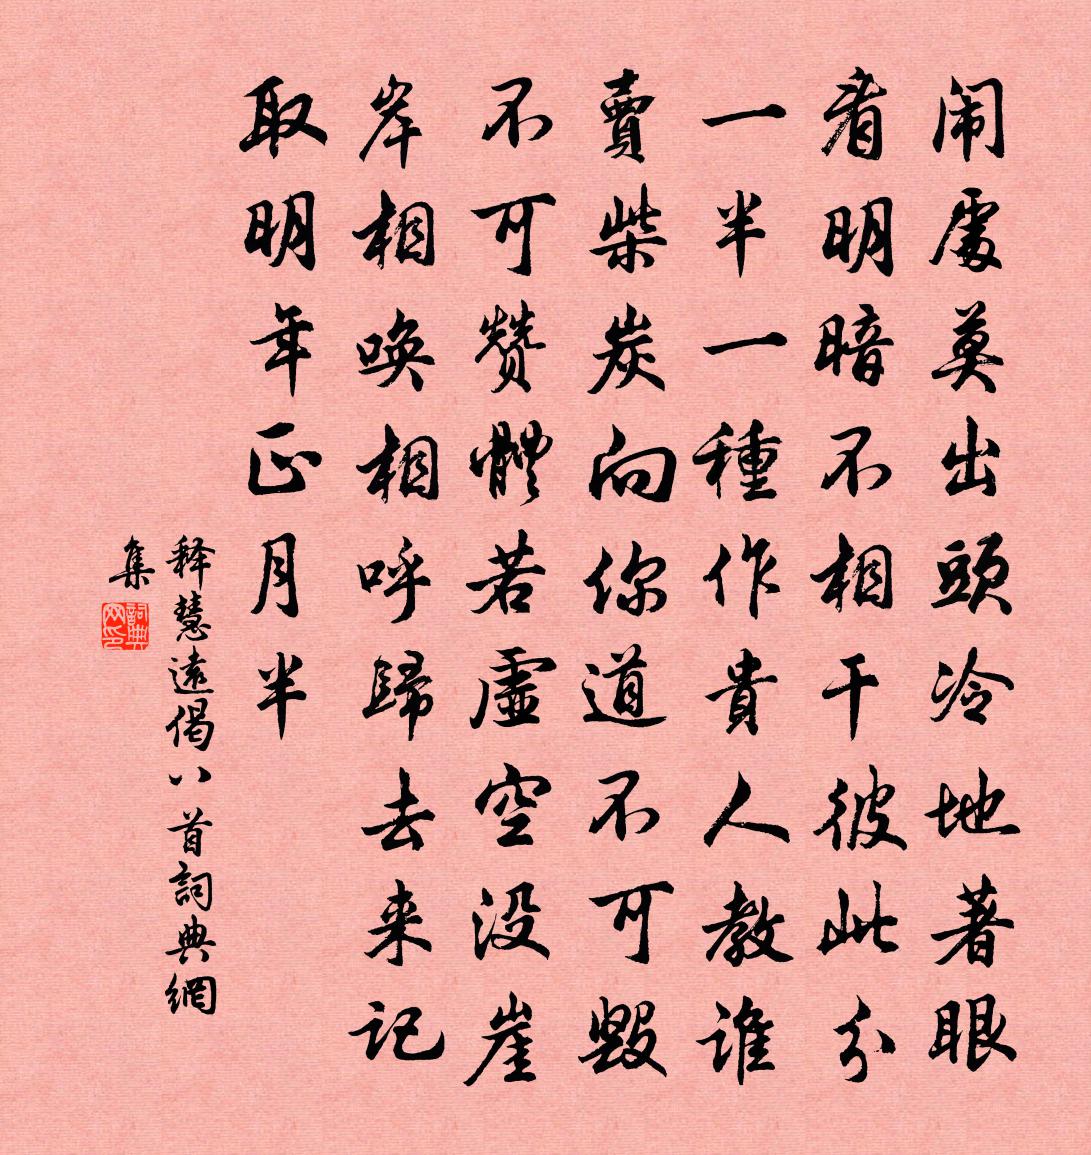 闹處莫出頭冷地著眼
看明暗不相干彼此分
一半一種作貴人教誰
賣柴炭向你道不可毀
不可赞體若虛空没崖
岸相唤相呼歸去来记
取明年正月半
释慧遠偈八首詞典網
集
詞典网印